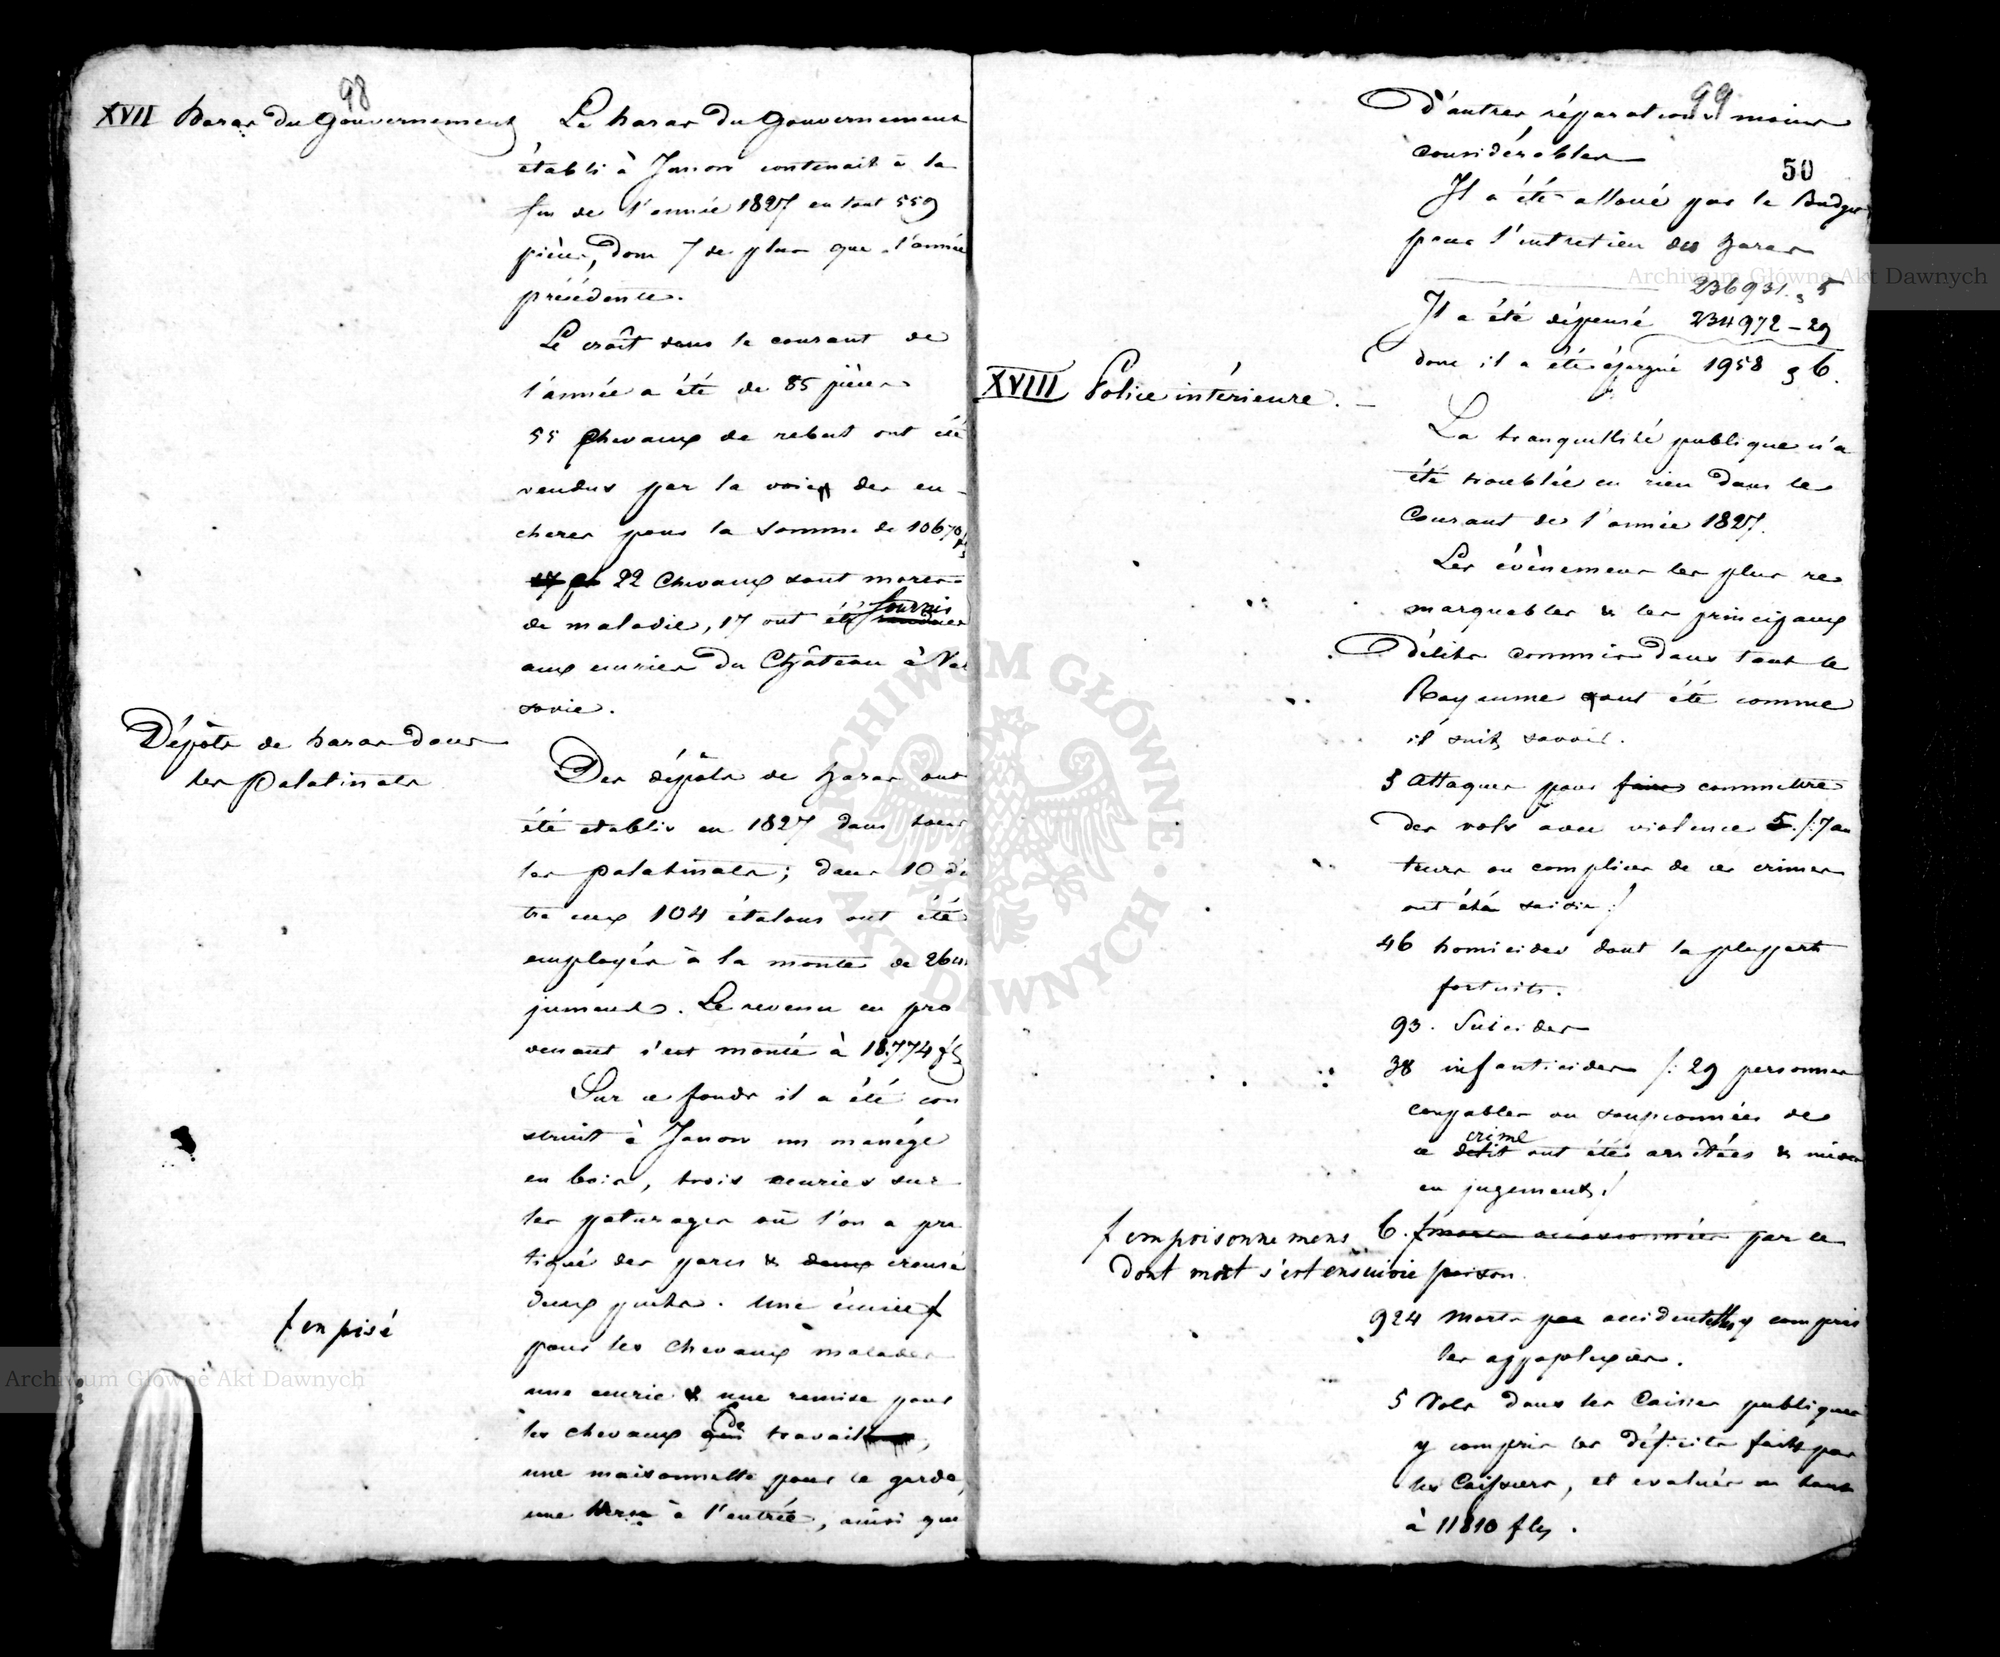 98
XVII Haras du Gouvernement
Le haras du Gouvernement
établi à Janow contenait à la
fin de l'année 1827 en tout 559
pièces, dont 7 de plus que l'année
précédente.
Le croît dans le courant de
l'année a été de 85 pièces
55 chevaux de rebut ont été
vendus par la voie des en-
cheres pour la somme de 10670 fls
22 chevaux sont morts
de maladie, 17 ont été fournis
aux ecuries du Château à Var
sovie.
Dépôts de haras dans
les palatinats
Des dépôts de haras ont
été etablis en 1827 dans tous
les palatinats; dans 10 d'en
tre eux 104 étalons ont été
employés à la monte de
juments. Le revenu en pro
venant s'est monté à 18,774 fls
Sur ce fonds il a été con
struit à Janow un manége
en bois, trois ecuries sur
les paturages où l'on a pra
tiqué des parcs & deux creusé
deux puits. Une écurie f
f en pisé
pour les chevaux malades
une ecurie & une remise pour
les chevaux de travail,
une maisonnette pour le garde,
une herse à l'entrée, ainsi que
99
50
d'autres réparations moins
considérables
Il a été alloué par le Budget
pour l'entretien des haras
236931. 5
Il a été dépensé 234972 - 29
donc il a été épargné 1958 " 6.
XVIII Police intérieure. -
La tranquillité publique n'a
été troublée en rien dans le
courant de l'année 1827.
Les évènemens les plus re
marquables & les principaux
délits commis dans tout le
Royaume ont été comme
il suit savoir.
3 Attaques pour faire commettre
des vols avec violence 5. /: 7 au
teurs ou complices de ces crimes
ont été saisis :/
46 homicides dont la plupart
fortuits.
93. Suicides
38 infanticides /: 29 personnes
coupables ou soupconnées de
ce delit crime ont étés arrêtées & mises
en jugement :/
6. f mors occasionnées par le
poison.
f empoisonnemens
dont mort s'est ensuivie
924 Morts par accidentelles y compris
les appoplexies.
5 Vols dans les Caisses publiques
y compris les déficits faits par
les Caissiers, et evalués en tout
à 11810 fls.
Archiwum Główne Akt Dawnych
Archiwum Główne Akt Dawnych
ARCHIWUM GŁÓWNE AKT DAWNYCH · AKT DAWNYCH ·